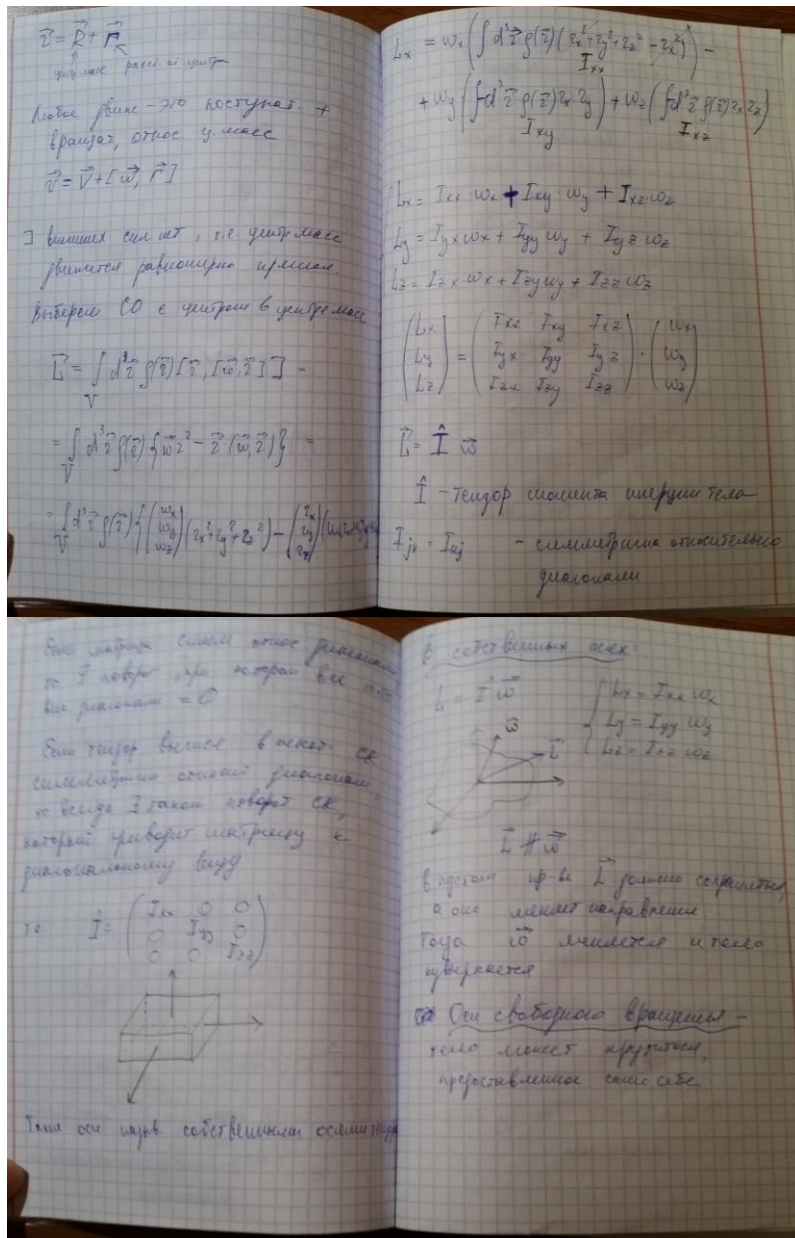 r⃗ = R⃗ + r⃗
центр масс расст. от центра
Любое движ - это поступат. +
вращат, относ. ц. масс
v⃗ = V⃗ + [ω⃗, r⃗]
∃ внешних сил нет, т.е. центр масс
движется равномерно прямол.
Выберем СО с центром в центре масс
L⃗ = ∫ d³r⃗ ρ(r⃗) [r⃗, [ω⃗, r⃗]] =
V
= ∫ d³r⃗ ρ(r⃗) {ω⃗ r² − r⃗·(ω⃗, r⃗)} =
V
= ∫ d³r⃗ ρ(r⃗) {(ωx ωy ωz) (rx² + ry² + rz²) − (rx ry rz)
V
Lx = ωx (∫ d³r⃗ ρ(r⃗) (rx² + ry² + rz² − rx²)) −
Ixx
+ ωy (∫ −d³r⃗ ρ(r⃗) rx·ry) + ωz (∫ −d³r⃗ ρ(r⃗) rx·rz)
Ixy Ixz
Lx = Ixx·ωx + Ixy·ωy + Ixz·ωz
Ly = Iyx ωx + Iyy ωy + Iyz ωz
Lz = Izx·ωx + Izy ωy + Izz ωz
(Lx) (Ixx Ixy Ixz) (ωx)
(Ly) = (Iyx Iyy Iyz) · (ωy)
(Lz) (Izx Izy Izz) (ωz)
L⃗ = Î ω⃗
Î - тензор момента инерции тела
Ijk = Ikj - симметрична относительно
диагонали
Если матрица симм относ диагонали
то ∃ поворот, при котором все
вне диагонали = 0
Если тензор высше в СК
симметрично относит диагонали,
то всегда ∃ такой поворот СК,
который приводит матрицу к
диагональному виду
(Ixx 0 0)
то Î = (0 Iyy 0)
(0 0 Izz)
Такие оси назыв. собственными осями
В собственных осях:
L = Î ω⃗
Lx = Ixx ωx
Ly = Iyy ωy
Lz = Izz ωz
ω⃗
L⃗
L⃗ ∦ ω⃗
В пустом пр-ве L⃗ должно сохраняться,
а оно меняет направление
Тогда ω⃗ меняется и тело
кувыркается
Оси свободного вращенья -
тело может крутиться,
предоставленное само себе